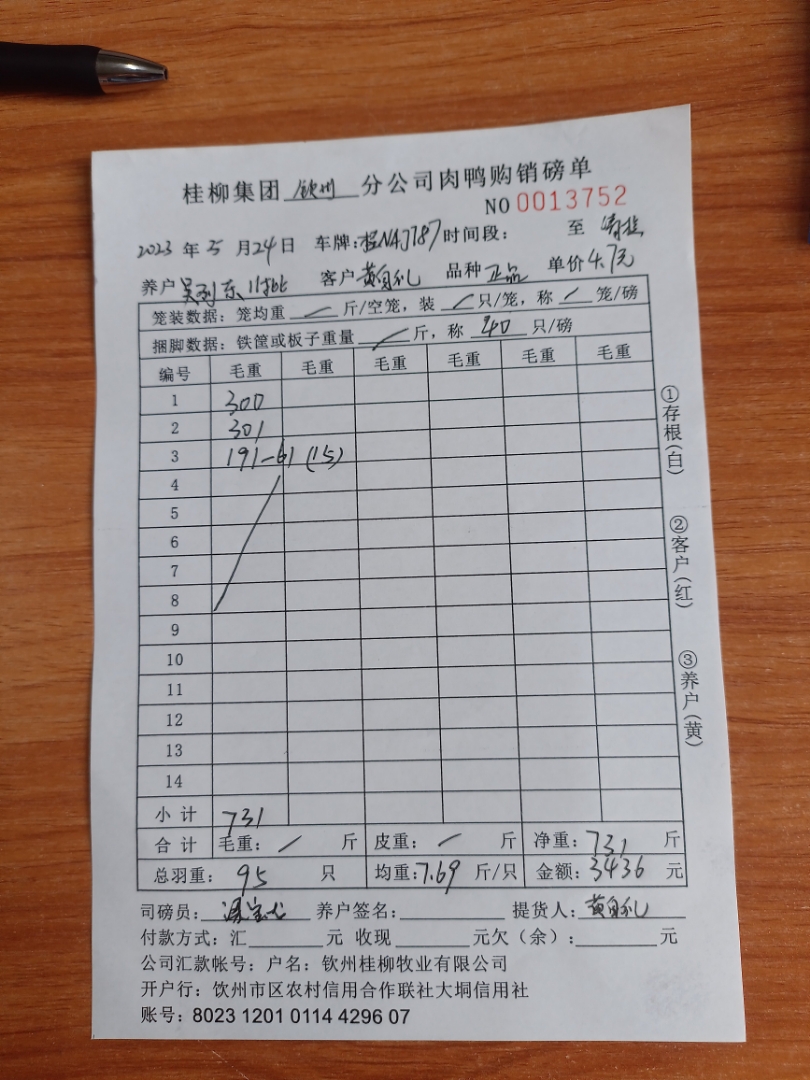 桂柳集团 钦州 分公司肉鸭购销磅单
NO 0013752
2023 年 5 月 24 日 车牌：桂NAJ787 时间段： 至
养户 东 客户 黄自礼 品种 正品 单价 4.7元
笼装数据：笼均重 / 斤/空笼，装 / 只/笼，称 / 笼/磅
捆脚数据：铁筐或板子重量 / 斤，称 40 只/磅
编号 毛重 毛重 毛重 毛重 毛重 毛重
1 300
2 301
3 191-61 (15)
4
5
6
7
8
9
10
11
12
13
14
小 计 731
合 计 毛重： / 斤 皮重： / 斤 净重：731 斤
总羽重： 95 只 均重：7.69 斤/只 金额：3436 元
司磅员： 养户签名： 提货人：黄自礼
付款方式：汇 元 收现 元欠（余）： 元
公司汇款帐号：户名：钦州桂柳牧业有限公司
开户行：钦州市区农村信用合作联社大垌信用社
账号：8023 1201 0114 4296 07
①存根(白)
②客户(红)
③养户(黄)